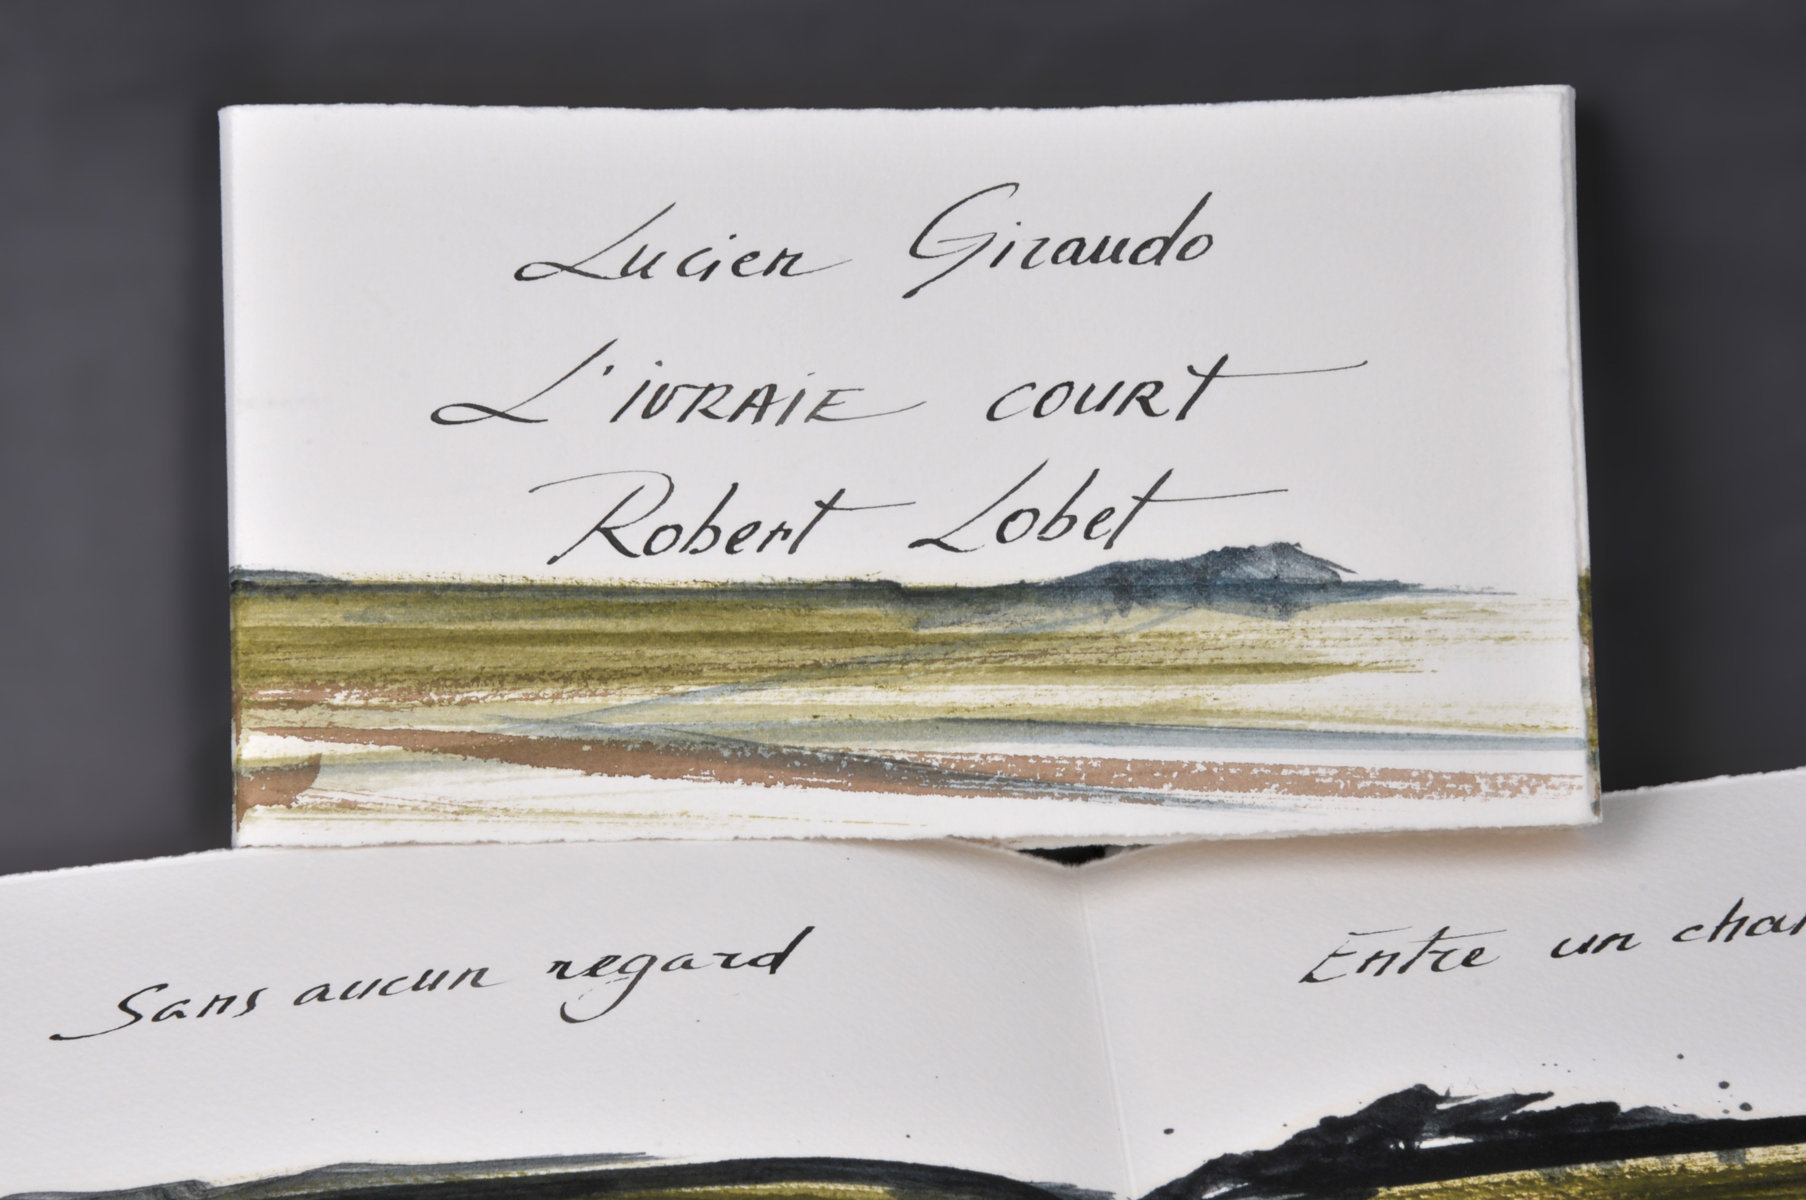 Lucien Giraudo
L'IVRAIE COURT
Robert Lobet
Sans aucun regard
Entre un